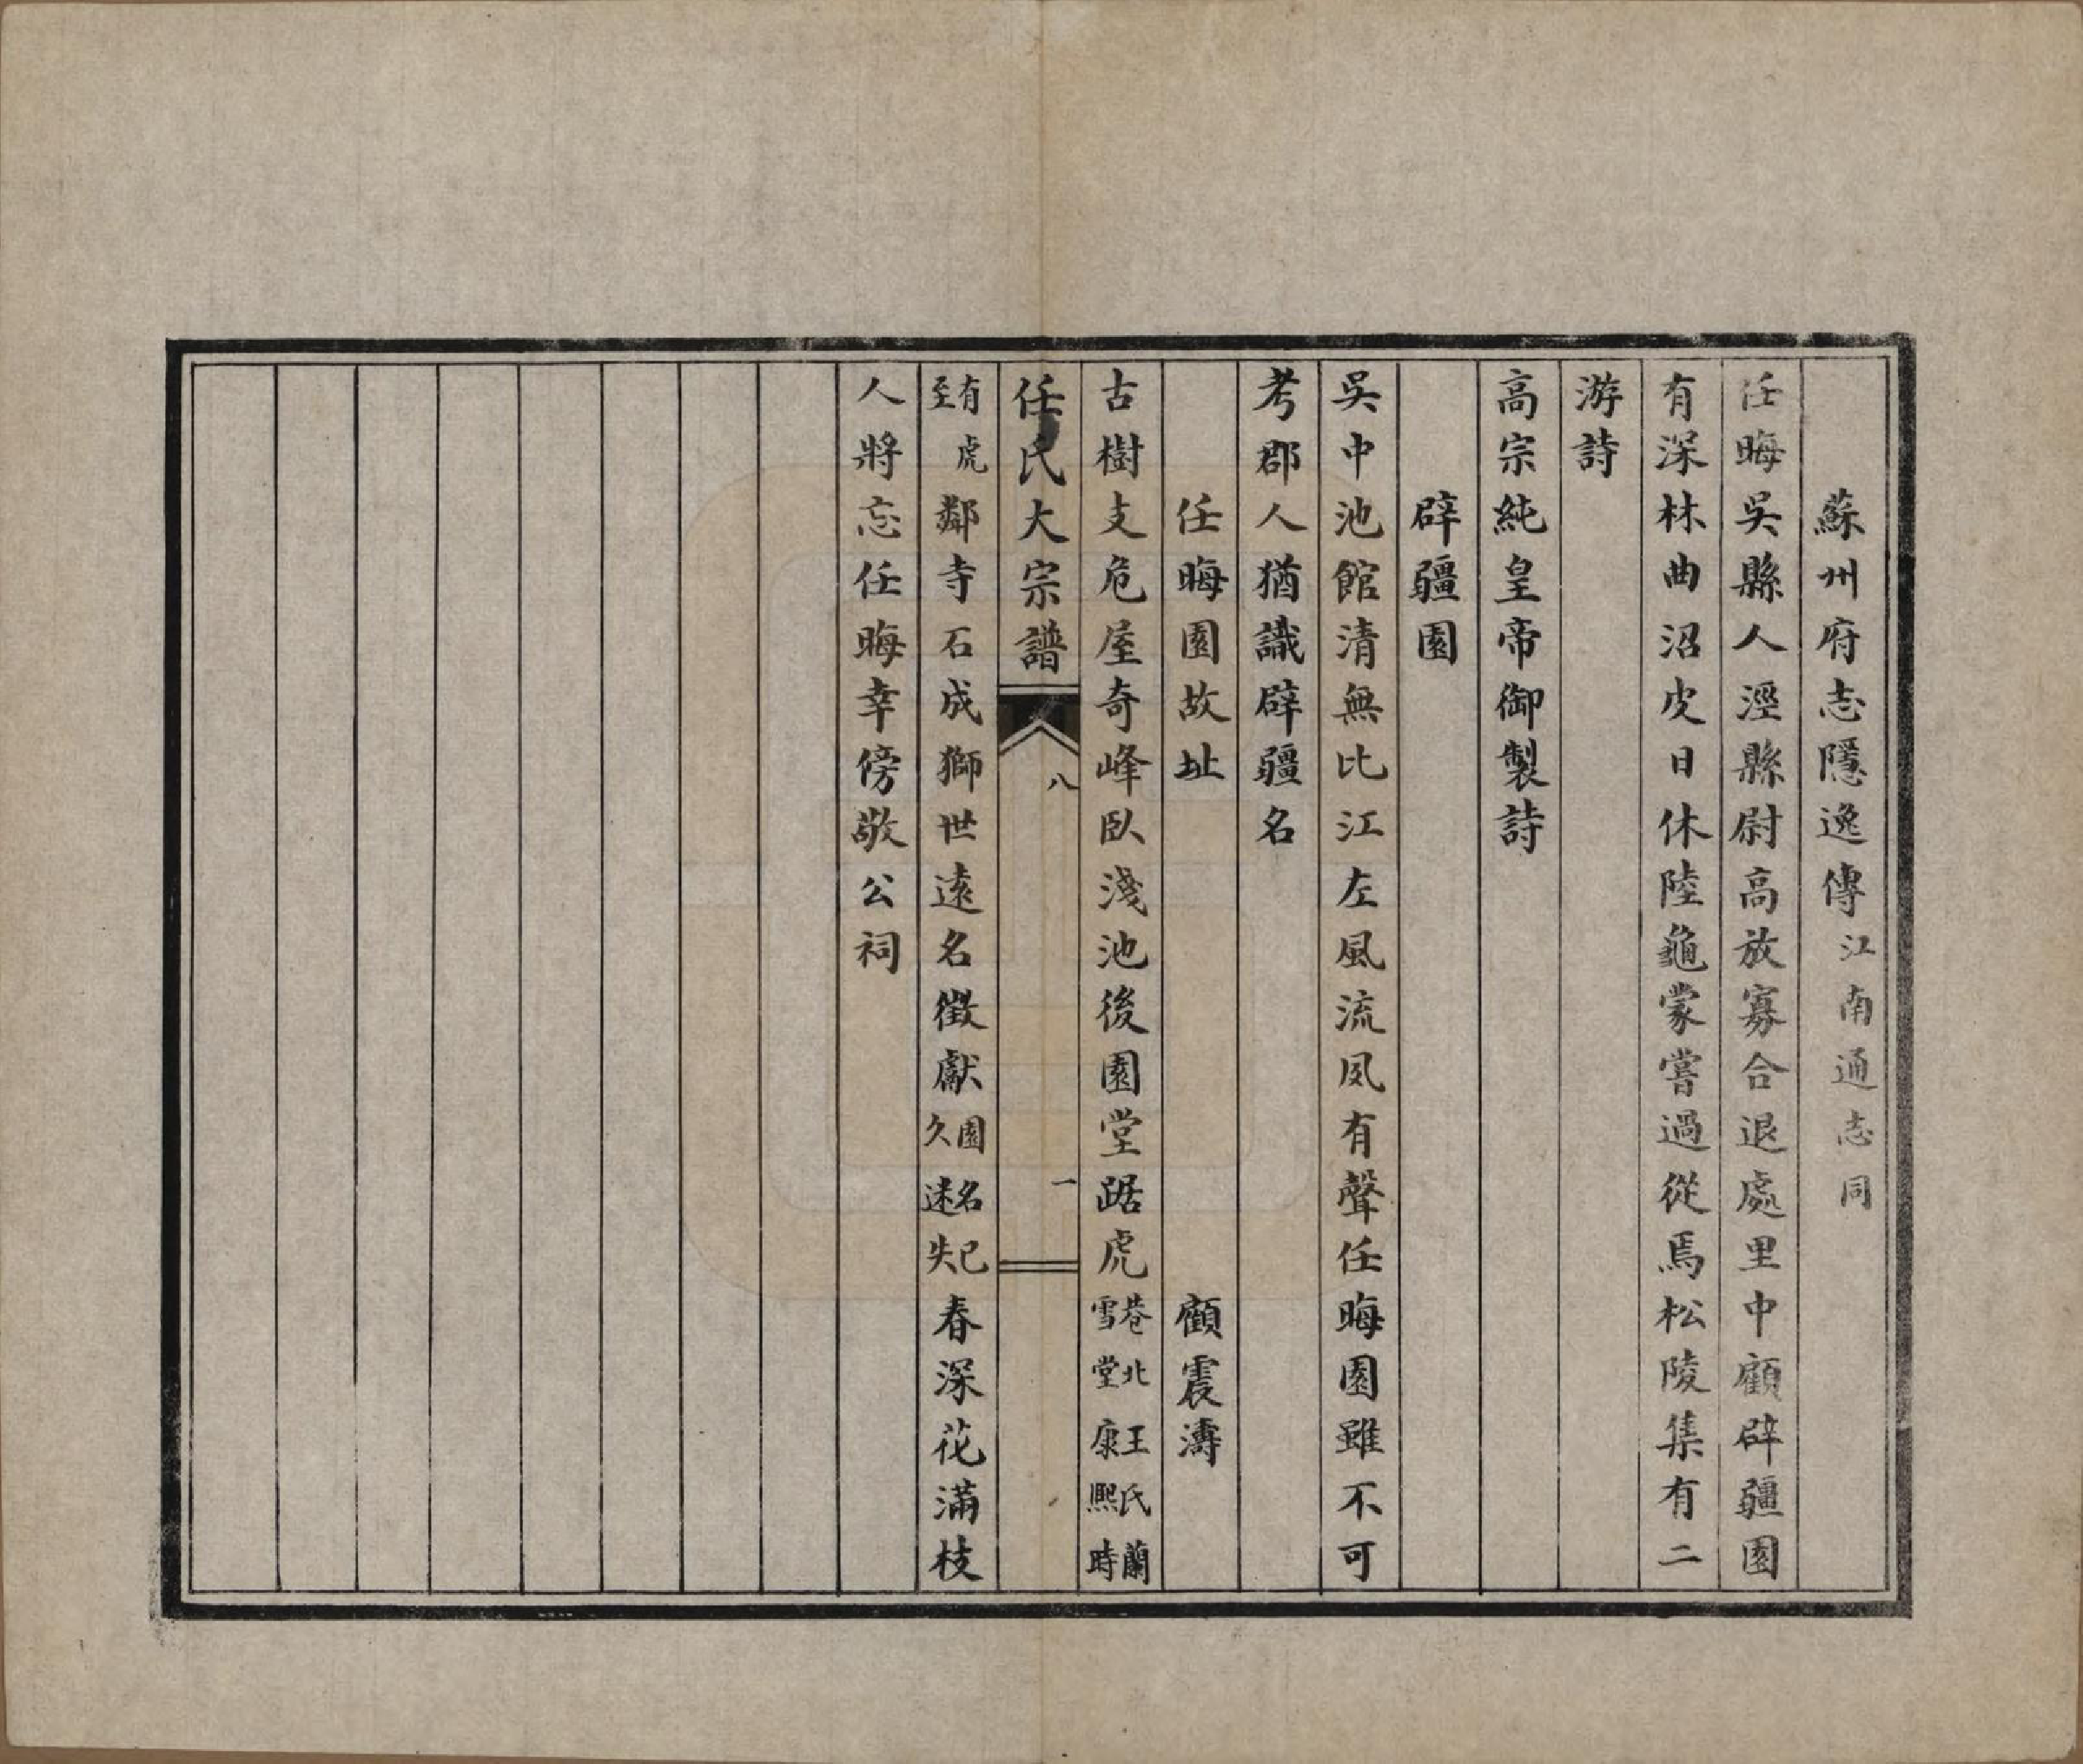 蘇州府志隱逸傳江南通志同
任晦吳縣人涇縣尉高放寡合退處里中顧辟疆園
有深林曲沼皮日休陸龜蒙嘗過從焉松陵集有二
游詩
高宗純皇帝御製詩
辟疆園
吳中池館清無比江左風流夙有聲任晦園雖不可
考郡人猶識辟疆名
任晦園故址 顧震濤
古樹支危屋奇峰臥淺池後園堂踞虎巷北王氏蘭雪堂康熙時
任氏大宗譜 八 一
有虎至鄰寺石成獅世遠名徵獻園名已久迷失春深花滿枝
人將忘任晦幸傍敬公祠